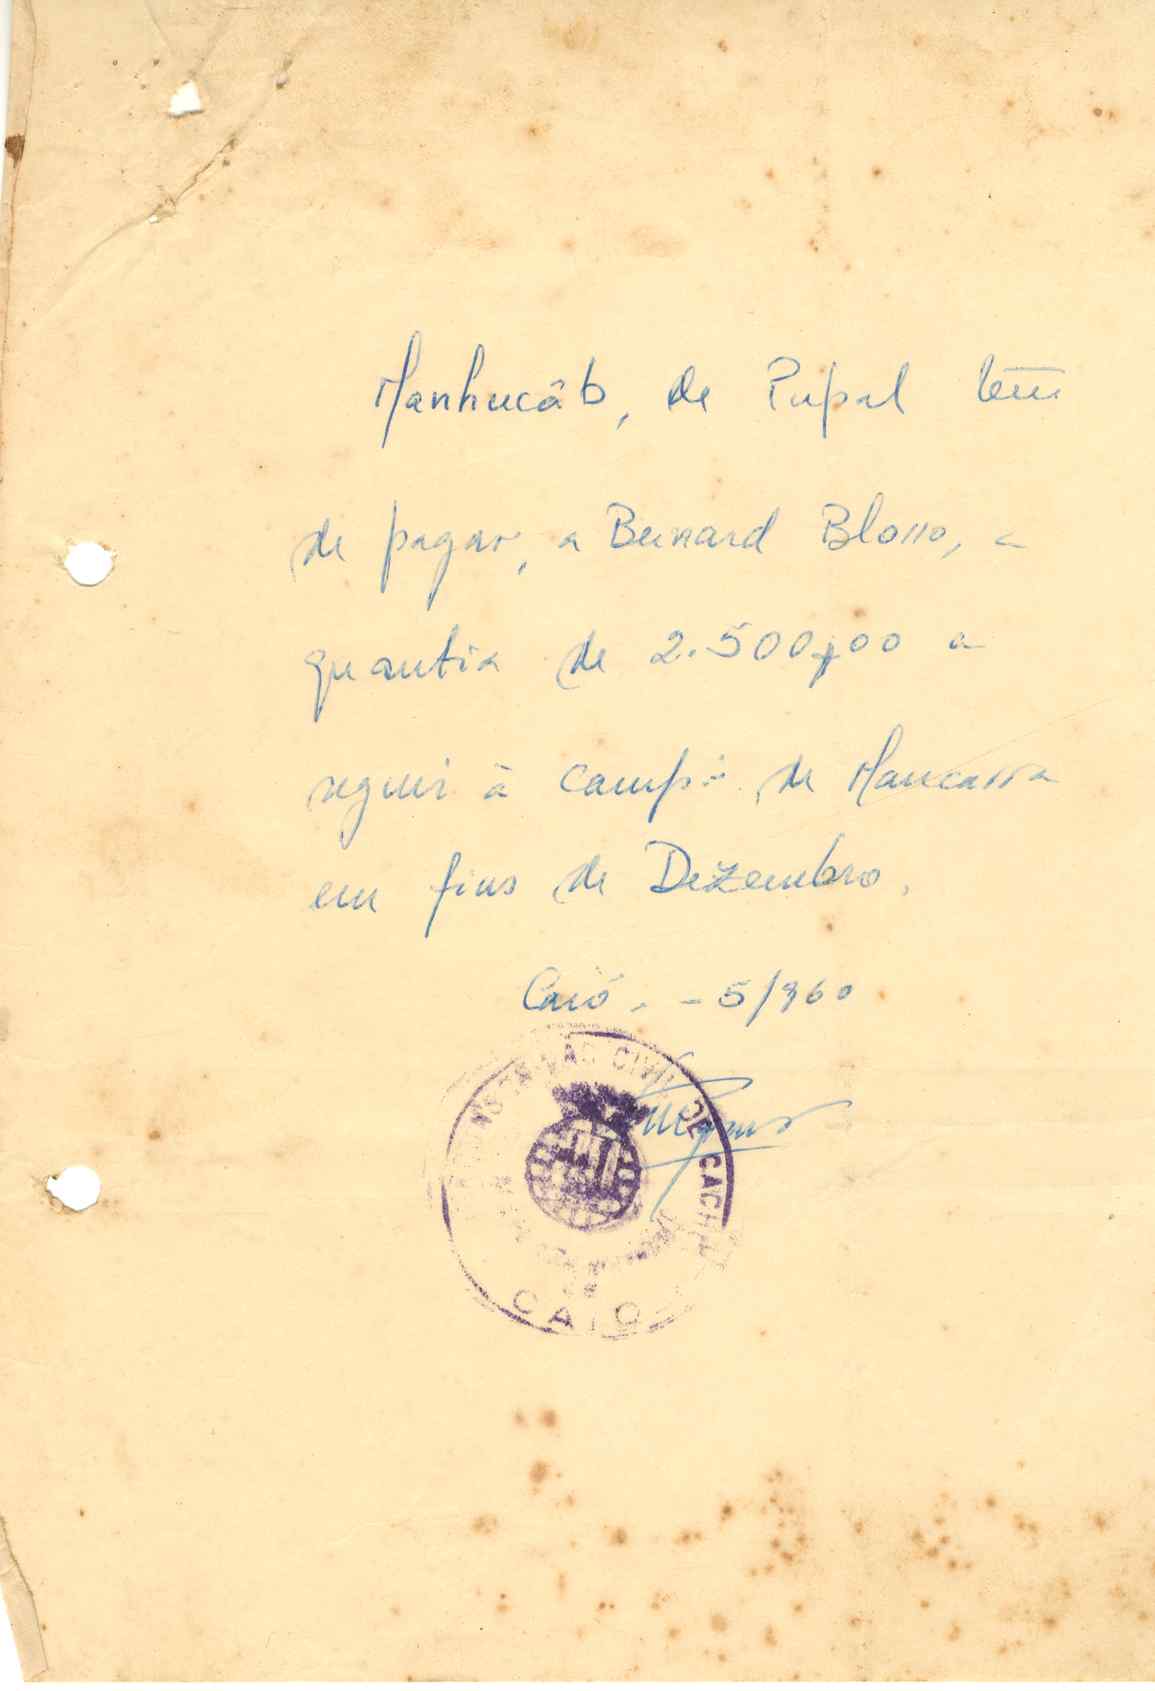 Manhucâb, de Pupal tem
de pagar, a Bernard Blosso, a
quantia de 2.500$00 a
seguir à camp.ª de Mancarra
em fins de Dezembro.
Caió, -5/960
CIVIL DE CACHEU
CAIO